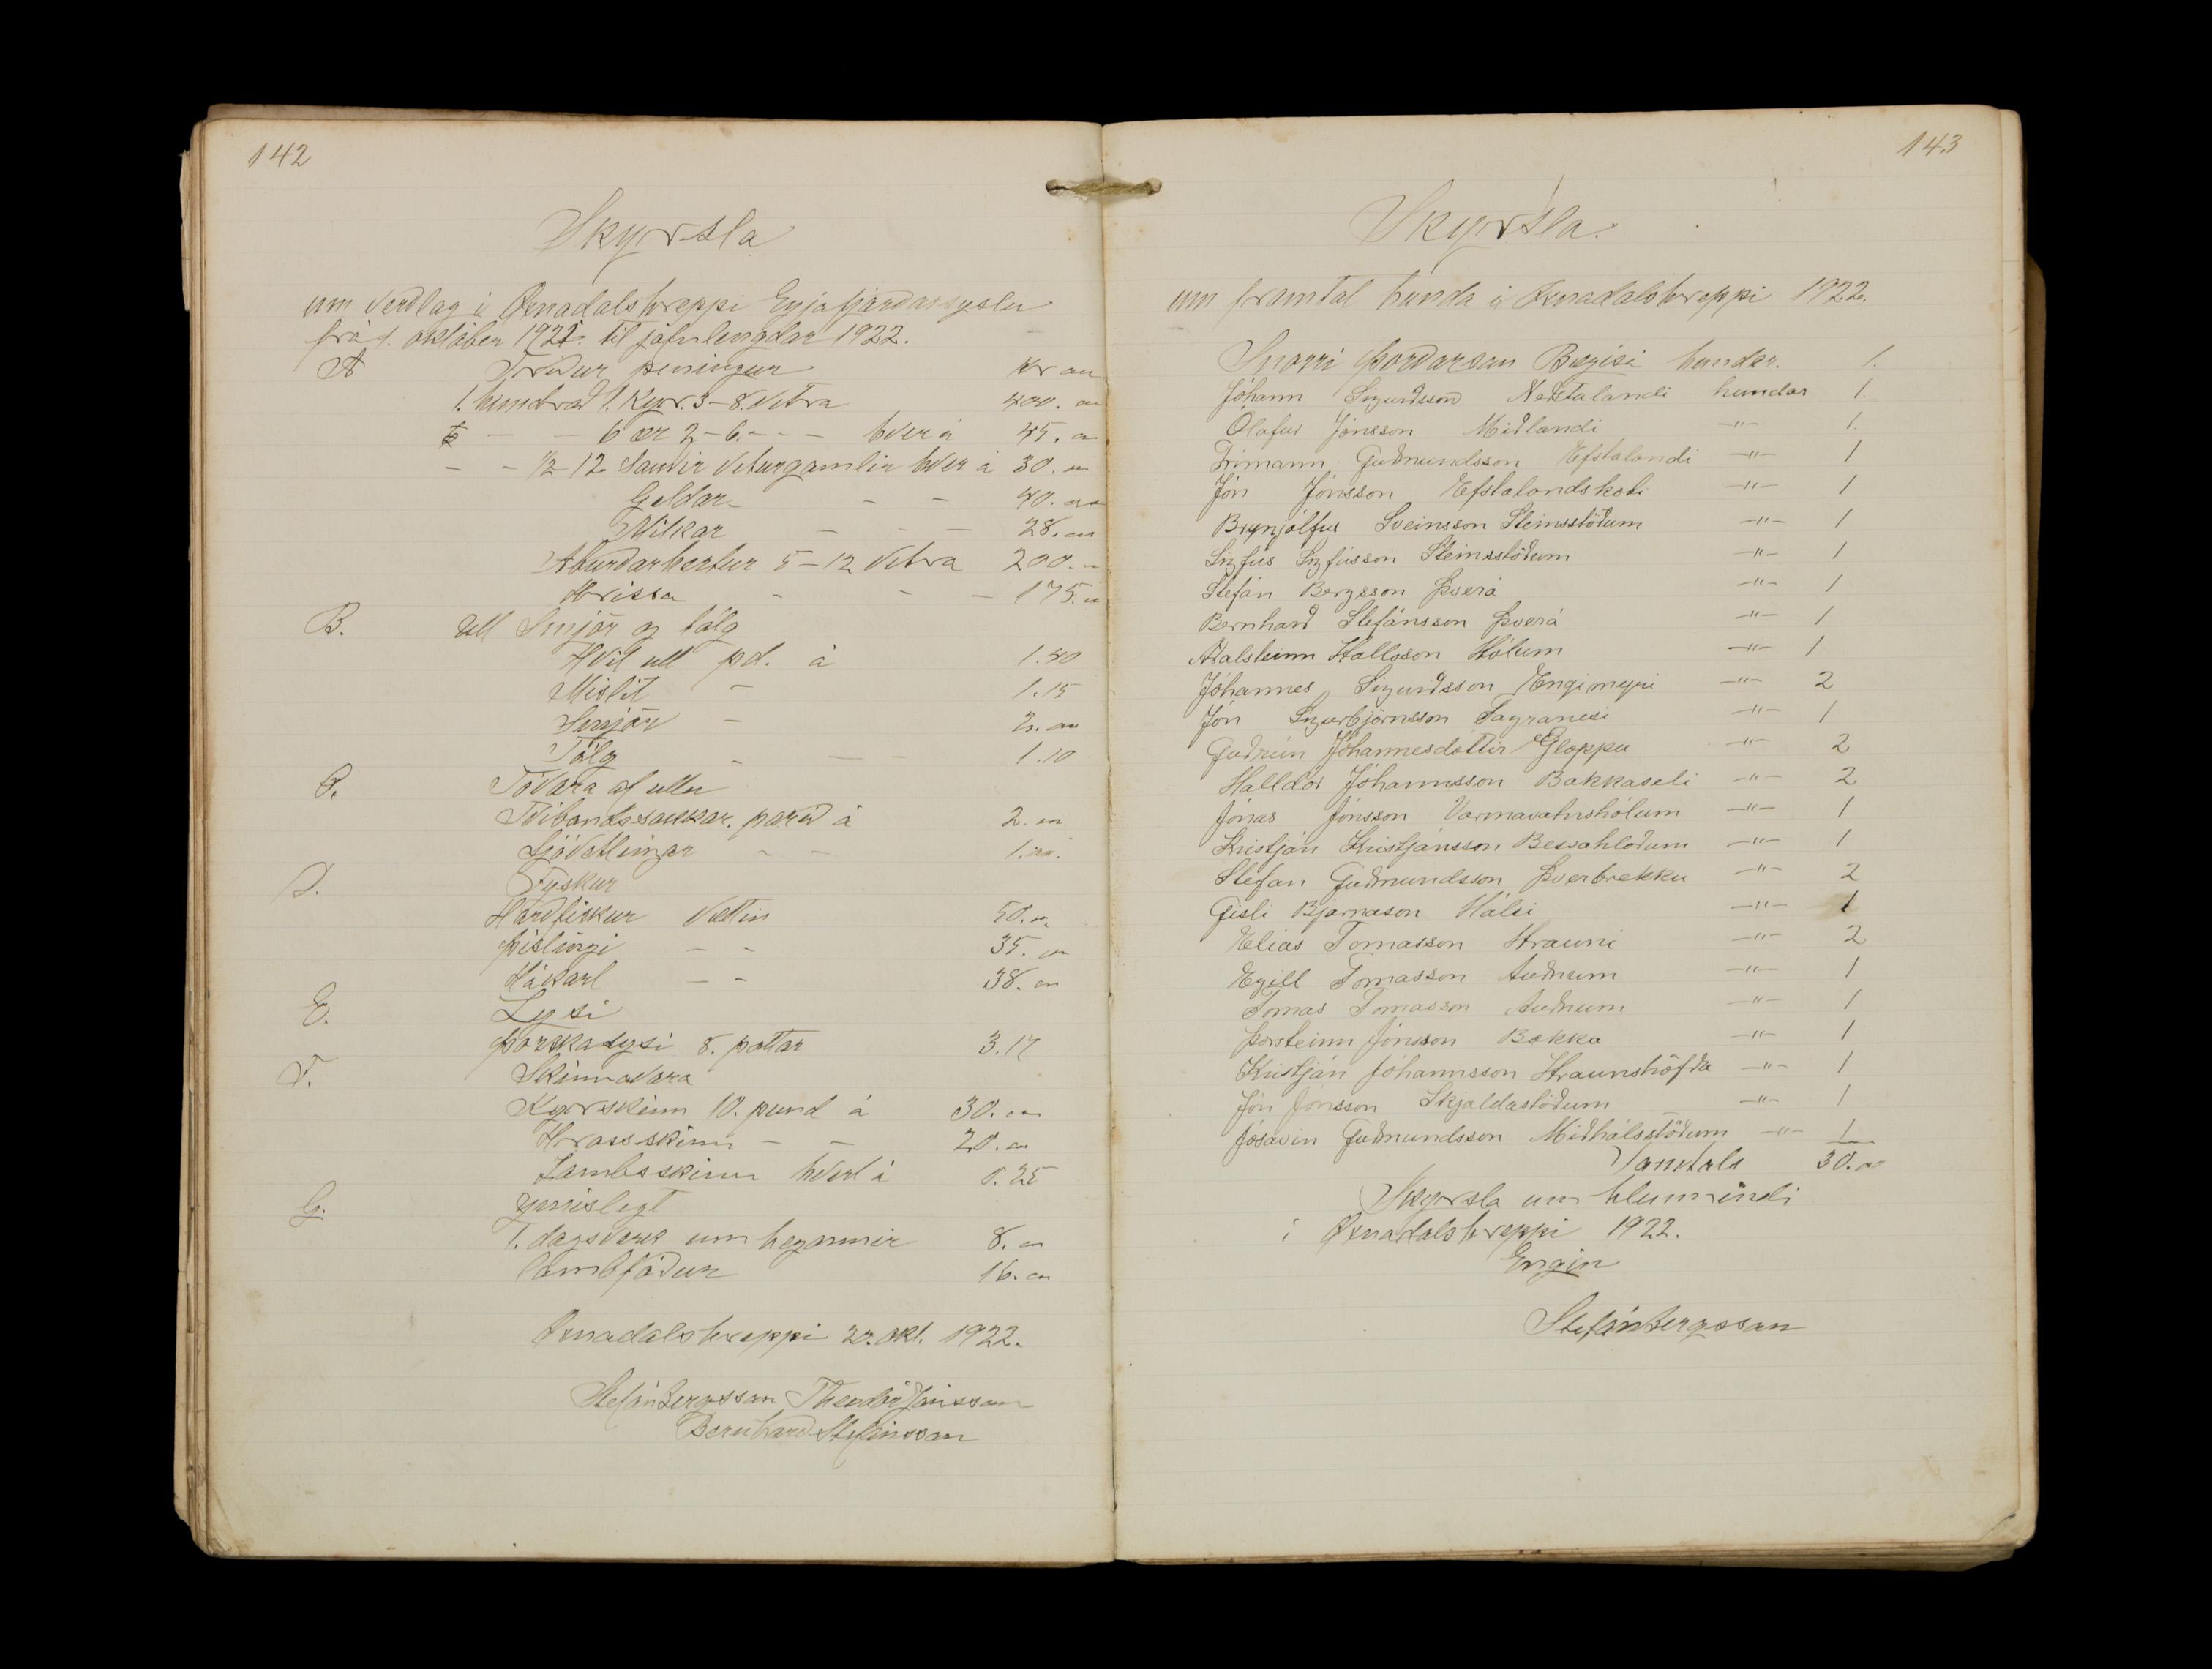 142
Skyrsla
um verdlag i Øxnadalshreppi Eyjafjardarsyslu
frá 1. október 1921. til jafnlengdar 1922.
A Frídur peningur Kr au
1. hundrad 1. Kyr. 3-8. vetra 400. "
6 ær 2-6. - - - hver á 45. "
- - 1/2 12 Saudir veturgamlir hver á 30. "
Geldar - - - 40. "
Milkar - - - 28. "
Aburdarhestur 5-12 vetra 200. "
Hrissa - - - 175. "
B. Ull Smjör og tólg
Hvit ull pd. á 1.40
Mislit - 1.15
Smjör - 2. "
Tólg - - - 1.10
C. Tóvara af ullu
Tvíbandssokkar. parid á 2. "
Sjóvetlingar - - 1. "
D. Fyskur
Hardfiskur Vættin 50. "
Þíslingi - - 35. "
Hákarl - - 38. "
E. Lysi
Þorskalysi 8. pottar 3.17
F. Skinnavara
Kyrskinn 10. pund á 30. "
Hrossskinn - - 20. "
Lambsskinn hvert á 0.25
G. Ymislegt
1. dagsverk um heyannir 8. "
Lambfódur 16. "
Øxnadalshreppi 20. okt. 1922.
Stefán Bergsson Theodór Jónsson
Bernhard Stefánsson
143
Skyrsla.
um framtal hunda i Øxnadalshreppi 1922.
Snorri Þordarson Bægisá hundar. 1.
Jóhann Sigurdsson Nedstalandi hundar 1.
Ólafur Jónsson Midlandi -"- 1.
Frimann Gudmundsson Efstalandi -"- 1
Jón Jónsson Efstalandskoti -"- 1
Brynjólfur Sveinsson Steinsstödum -"- 1
Sigfús Sigfússon Steinsstödum -"- 1
Stefán Bergsson Þverá -"- 1
Bernhard Stefánsson Þverá -"- 1
Adalsteinn Hallsson Hólum -"- 1
Jóhannes Sigurdsson Engimyri -"- 2
Jón Sigurbjörnsson Fagranesi -"- 1
Gudrún Jóhannesdóttir Gloppu -"- 2
Halldór Jóhannsson Bakkaseli -"- 2
Jónas Jónsson Varmavatnshólum -"- 1
Kristján Kristjánsson Bessahlödum -"- 1
Stefan Gudmundsson Þverbrekku -"- 2
Gisli Bjarnason Hálsi -"- 1
Elias Tomasson Hrauni -"- 2
Egill Tomasson Audnum -"- 1
Tomas Tomasson Audnum -"- 1
Þorsteinn Jónsson Bakka -"- 1
Kristján Jóhannsson Hraunshöfda -"- 1
Jón Jónsson Skjaldastödum -"- 1
Jósavin Gudmundsson Midhálsstödum -"- 1
Samtals 30. "
Skyrsla um hlunnindi
i Øxnadalshreppi 1922.
Engin
Stefán Bergsson